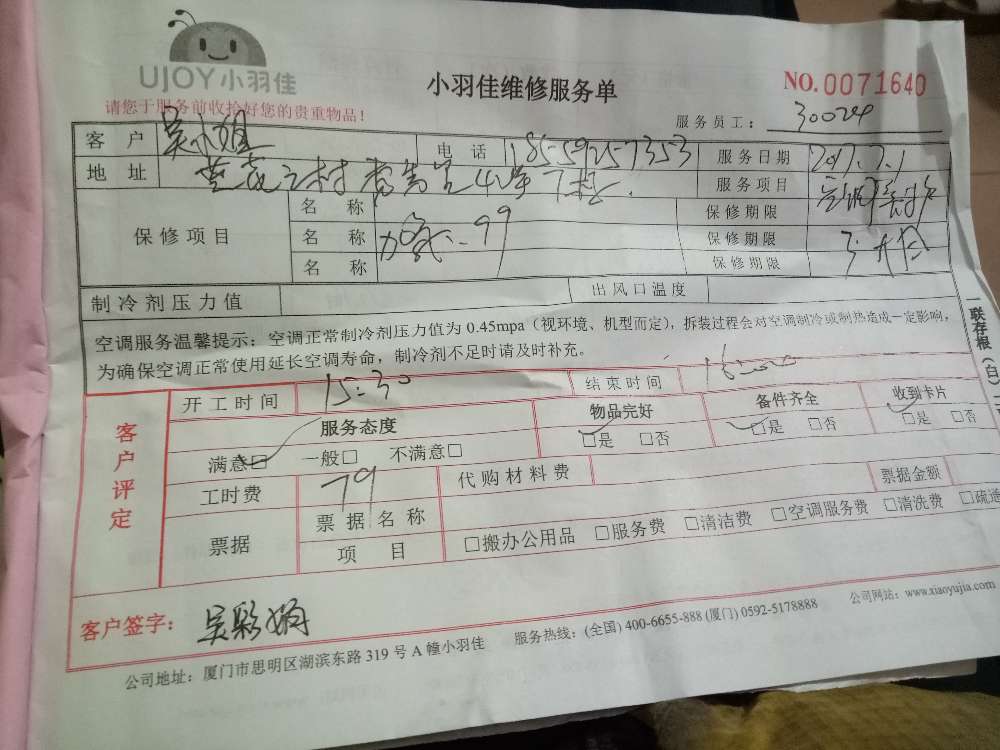 UJOY小羽佳
小羽佳维修服务单
NO.0071640
请您于服务前收拾好您的贵重物品！
服务员工：
客 户 吴小姐 电 话 18559257353 服务日期 2017.7.1
地 址 服务项目
保修项目 名 称 保修期限
名 称 加氟 99 保修期限
名 称 保修期限
制冷剂压力值 出风口温度
空调服务温馨提示：空调正常制冷剂压力值为 0.45mpa（视环境、机型而定），拆装过程会对空调制冷或制热造成一定影响，
为确保空调正常使用延长空调寿命，制冷剂不足时请及时补充。
一联存根（白）
客户评定
开工时间 15:30 结束时间 16:00
服务态度 物品完好 备件齐全 收到卡片
满意□ 一般□ 不满意□ □是 □否 □是 □否 □是 □否
工时费 79 代购材料费 票据金额
票据 票据名称
项 目 □搬办公用品 □服务费 □清洁费 □空调服务费 □清洗费 □疏通
客户签字：
公司地址：厦门市思明区湖滨东路 319 号 A 幢小羽佳 服务热线：(全国) 400-6655-888 (厦门) 0592-5178888 公司网站：www.xiaoyujia.com